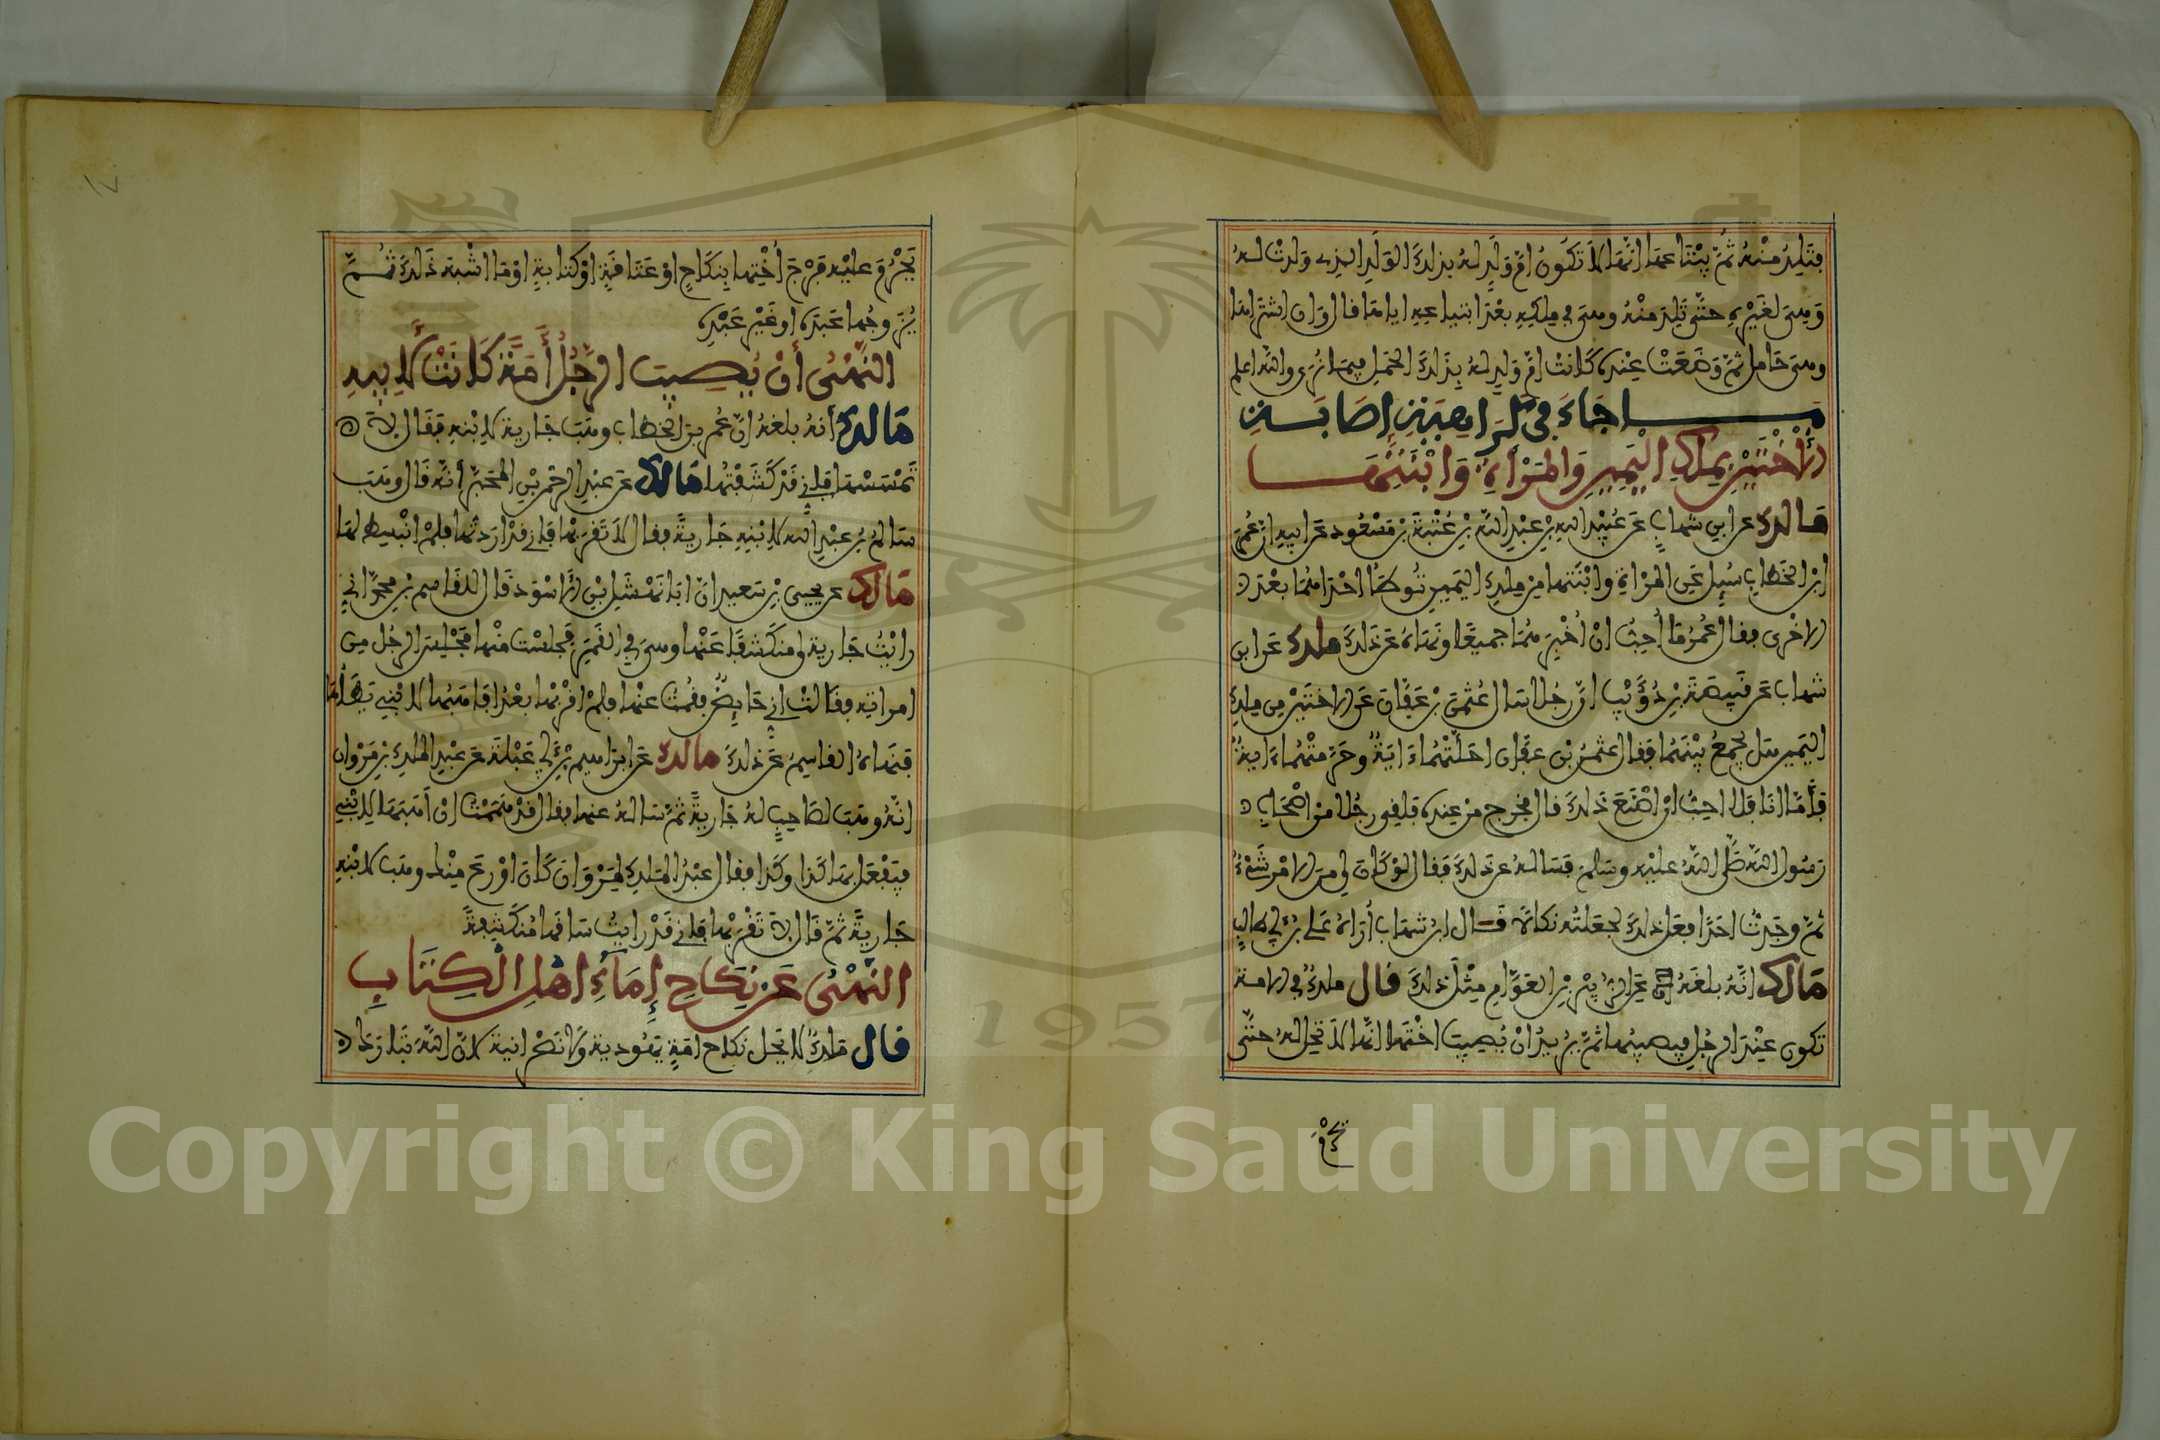 فتلد منه ثم يبتاعها انها لا تكون ام ولد له بذلك الولد الذي ولدت له
وهي لغيره حتى تلد منه وهي في ملكه بعد ابتياعه اياها قال وان اشتراها
وهي حامل ثم وضعت عنده كانت ام ولد له بذلك الحمل فيما نرى والله اعلم
ما جاء في كراهية اصابة
الاختين بملك اليمين والمرأة وابنتها
مالك عن ابن شهاب عن عبيد الله بن عبد الله بن عتبة بن مسعود عن ابيه ان عمر
ابن الخطاب سئل عن المرأة وابنتها من ملك اليمين توطأ احداهما بعد
الاخرى فقال عمر ما أحب ان أخبرهما جميعا ونهاه عن ذلك ملك عن ابن
شهاب عن قبيصة بن ذؤيب ان رجلا سال عثمن بن عفان عن الاختين من ملك
اليمين هل يجمع بينهما فقال عثمن بن عفان احلتهما ءاية وحرمتهما ءاية
فأما انا فلا احب ان اصنع ذلك قال فخرج من عنده فلقي رجلا من اصحاب
رسول الله صلى الله عليه وسلم فسأله عن ذلك فقال لو كان لي من الامر شيء
ثم وجدت احدا فعل ذلك لجعلته نكالا قال ابن شهاب أراه علي بن أبي طالب
مالك انه بلغه عن الزبير بن العوام مثل ذلك قال ملك في الامة
تكون عند الرجل فيصيبها ثم يريد أن يصيب اختها انها لا تحل له حتى
يحرم
١٧
يحرم عليه فرج أختها بنكاح او عتاقة او كتابة او ما اشبه ذلك ثم
يزوجها عبده او غير عبده
النهي أن يصيب الرجل أمة كانت لأبيه
مالك أنه بلغه ان عمر بن الخطاب وهب جارية لابنه فقال لا
تمسها فاني قد كشفتها مالك عن عبد الرحمن بن المجبر انه قال وهب
سالم بن عبد الله لابنه جارية فقال لا تقربها فاني قد اردتها فلم انبسط لها
مالك عن يحيى بن سعيد ان ابا نهشل بن الاسود قال للقاسم بن محمد اني
رايت جارية لي منكشفا عنها وهي في القمر فجلست منها مجلس الرجل من
امراته فقالت اني حايض فقمت عنها فلم اقربها بعد افاهبها لابني يطأها
فنهاه القاسم عن ذلك مالك عن ابراهيم بن أبي عبلة عن عبد الملك بن مروان
انه وهب لصاحب له جارية ثم ساله عنها فقال قد هممت ان أهبها لابني
فيفعل بها كذا وكذا فقال عبد الملك لمروان كان اورع منك وهب لابنه
جارية ثم قال لا تقربها فاني قد رايت ساقها منكشفة
النهي عن نكاح إماء اهل الكتاب
قال ملك لا يحل نكاح امة يهودية ولا نصرانية لان الله تبارك
Copyright © King Saud University
1957